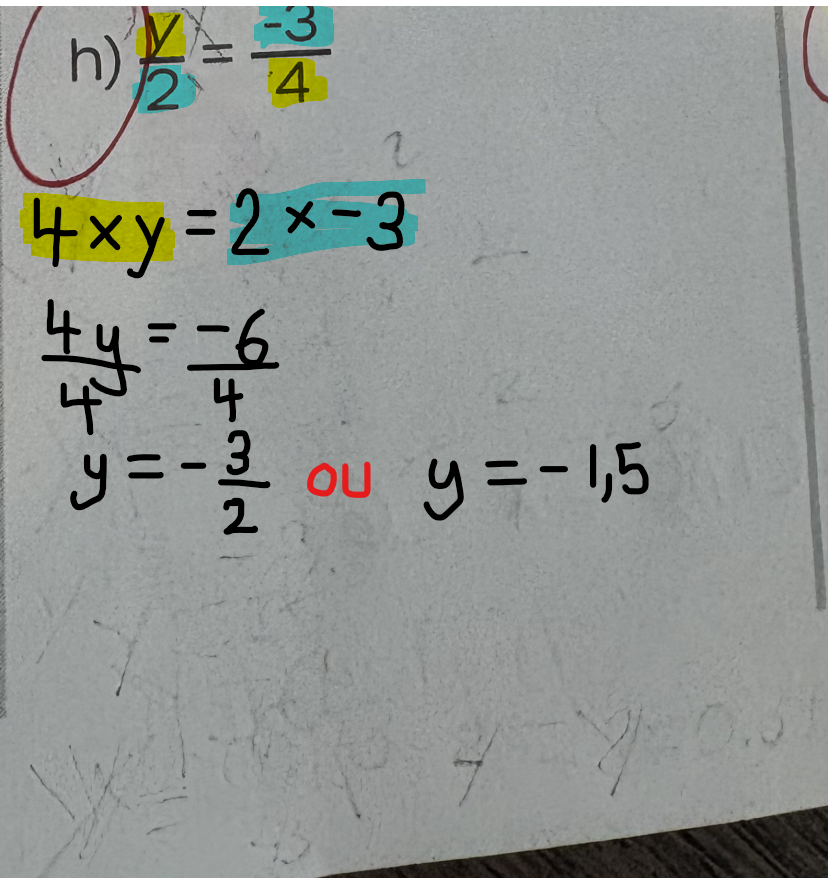 h) y/2 = -3/4
4 × y = 2 × - 3
4y/4 = -6/4
y = - 3/2 ou y = - 1,5